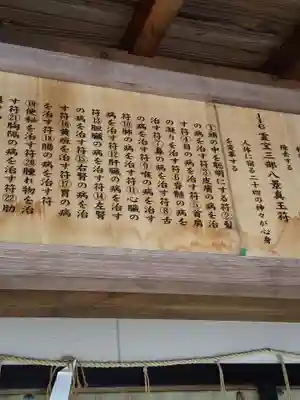 除去する
1~6 霊宝三部八景真王符
人体に宿る二十四の神々が心身
を安楽する
①頭の中を聡明にする符②髪
の病を治す符③皮膚の病を治
す符④目の病を治す符⑤首肩
の凝りを治す符⑥脊髄の病を
治す符⑦鼻の病を治す符⑧舌
の病を治す符⑨喉の病を治す
符⑩肺の病を治す符⑪心臓の
病を治す符⑫肝臓の病を治す
符⑬胆臓の病を治す符⑭左腎
の病を治す符⑮右腎の病を治
す符⑯黄疸を治す符⑰胃の病
を治す符⑱腸の病を治す符
⑲便秘を治す符⑳腫れ物を治
す符㉑胸隔の病を治す符㉒肋